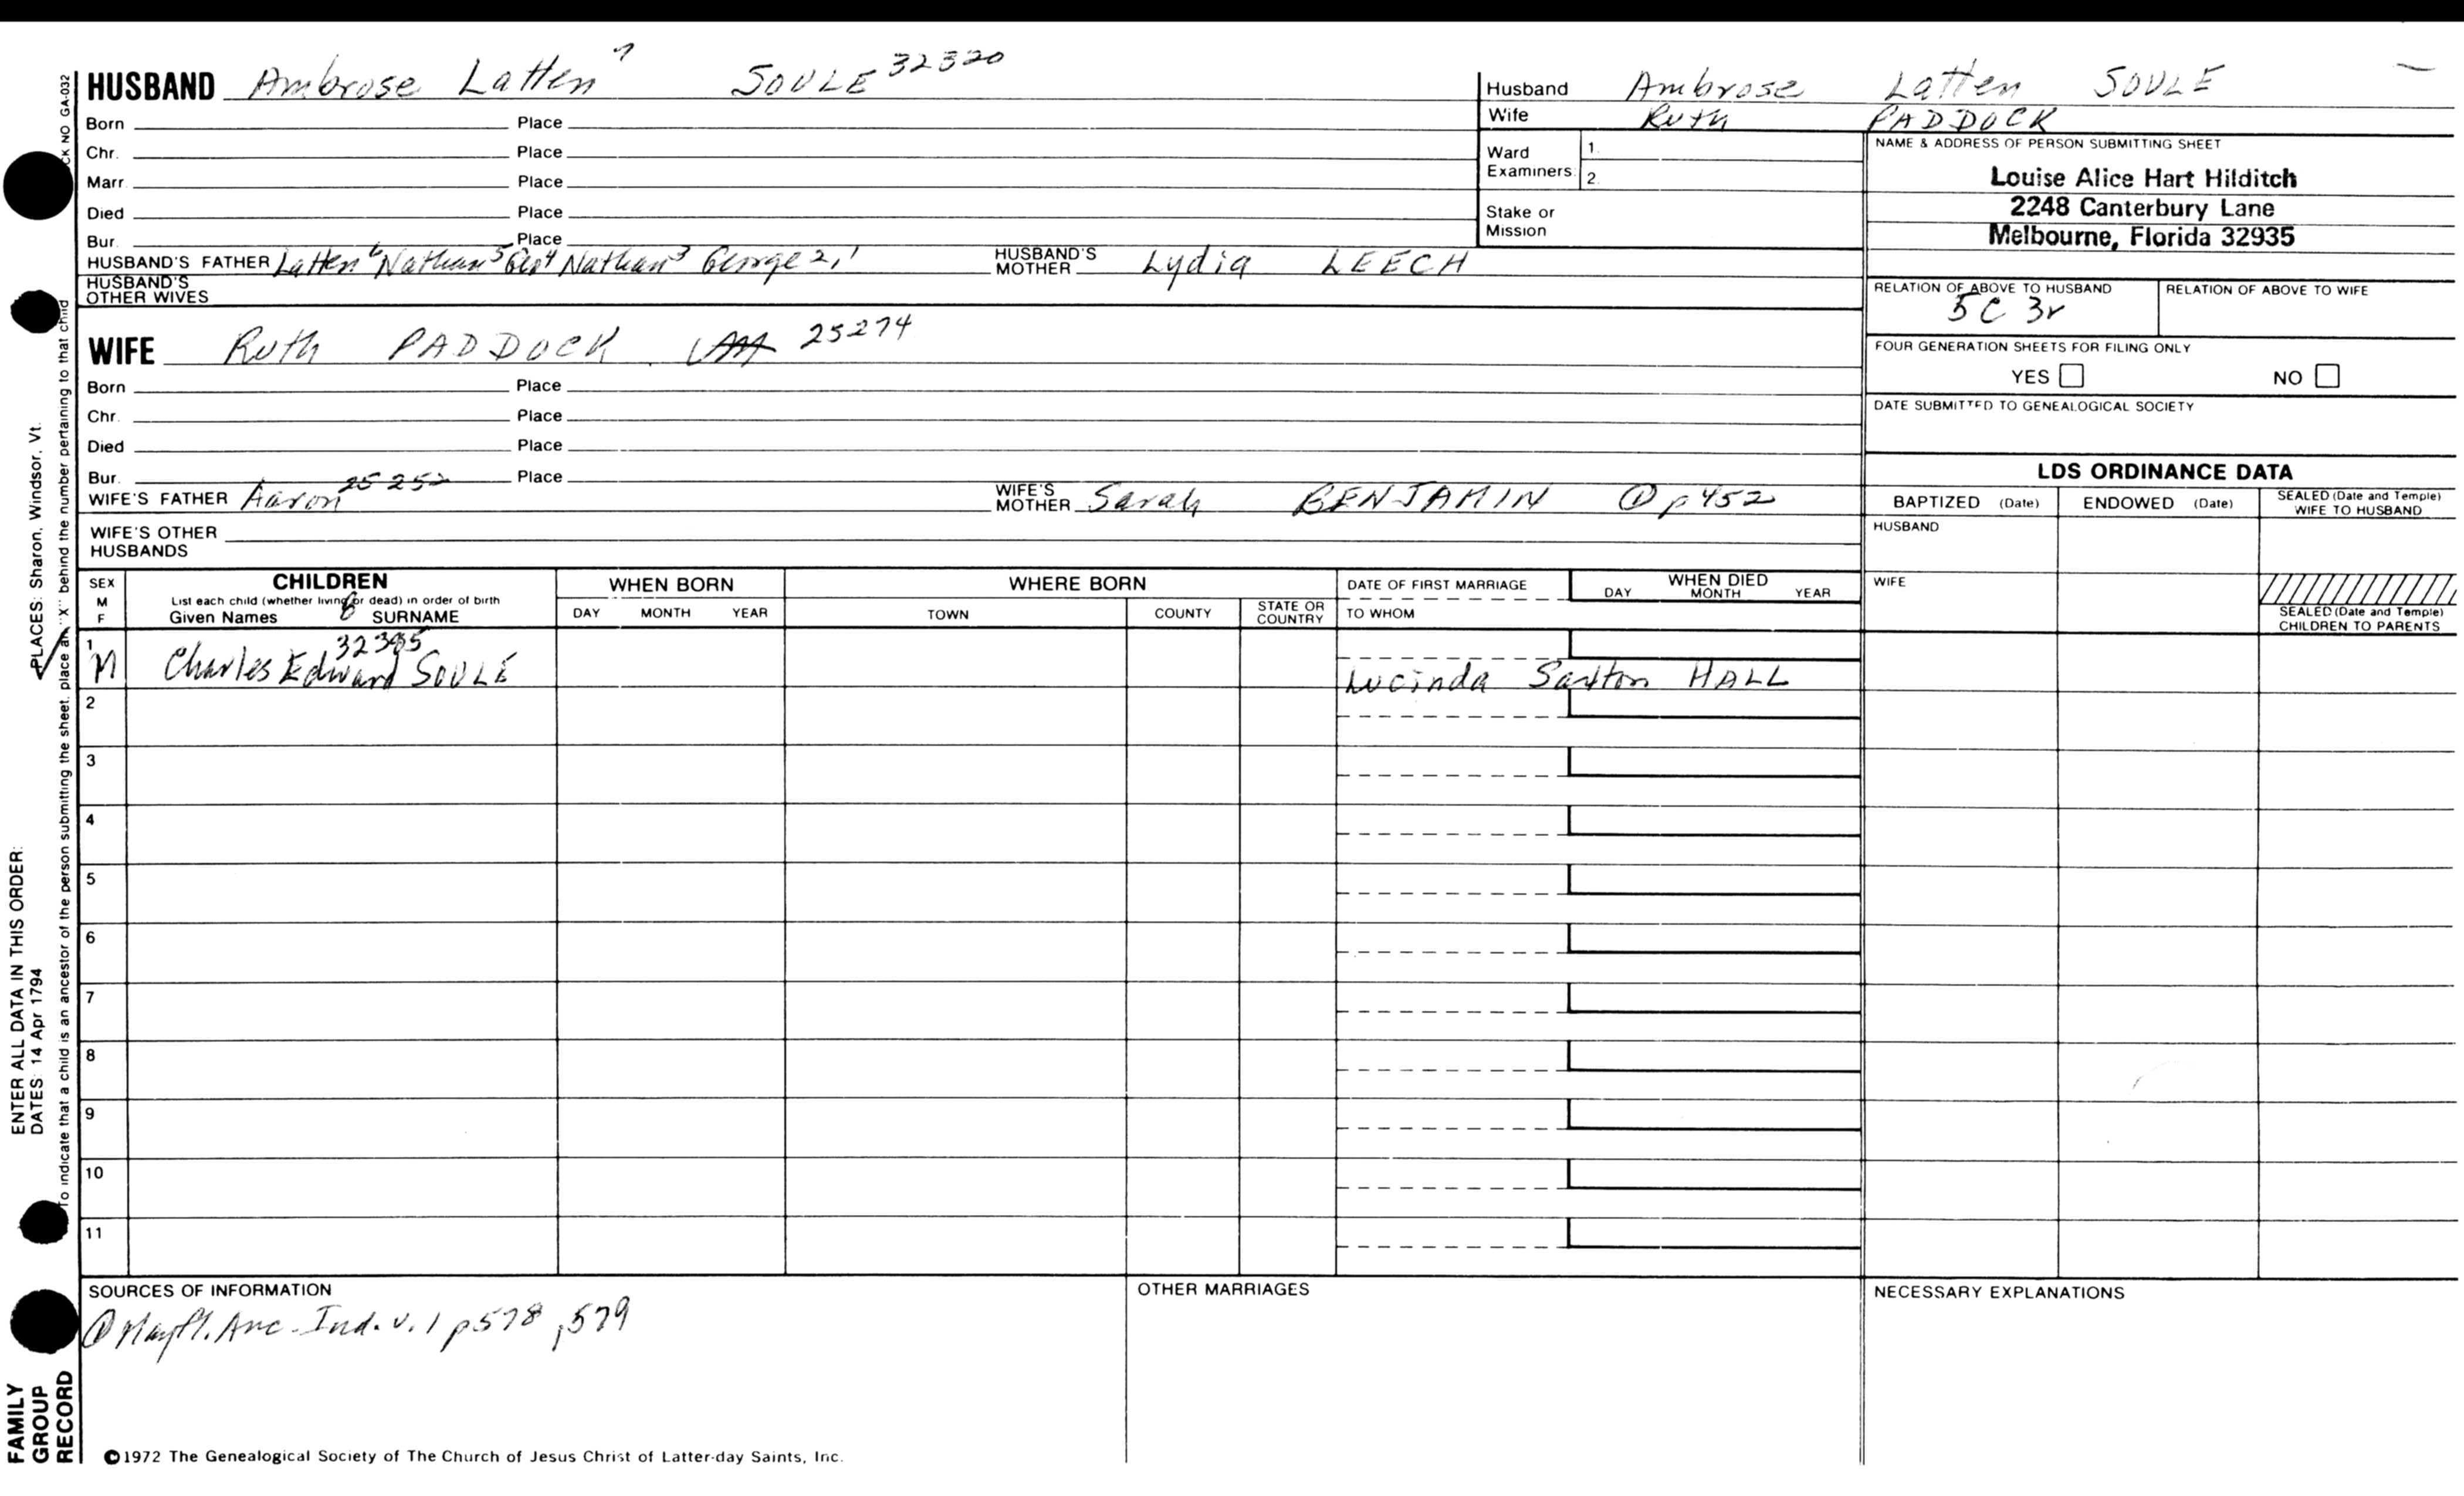 HUSBAND Ambrose Latten 7 SOULE 32320
Born Place
Chr. Place
Marr. Place
Died Place
Bur. Place
HUSBAND'S FATHER Latten 6 Nathan 5 Geo 4 Nathan 3 George 2,1 HUSBAND'S MOTHER Lydia LEECH
HUSBAND'S OTHER WIVES
WIFE Ruth PADDOCK 25274
Born Place
Chr. Place
Died Place
Bur. Place
WIFE'S FATHER Aaron 25252 WIFE'S MOTHER Sarah BENJAMIN @ p 452
WIFE'S OTHER HUSBANDS
Husband Ambrose Latten SOULE
Wife Ruth PADDOCK
Ward Examiners: 1.
2.
Stake or Mission
NAME & ADDRESS OF PERSON SUBMITTING SHEET
Louise Alice Hart Hilditch
2248 Canterbury Lane
Melbourne, Florida 32935
RELATION OF ABOVE TO HUSBAND RELATION OF ABOVE TO WIFE
5C 3r
FOUR GENERATION SHEETS FOR FILING ONLY
YES NO
DATE SUBMITTED TO GENEALOGICAL SOCIETY
LDS ORDINANCE DATA
BAPTIZED (Date) ENDOWED (Date) SEALED (Date and Temple) WIFE TO HUSBAND
HUSBAND
WIFE
SEALED (Date and Temple) CHILDREN TO PARENTS
SEX M F CHILDREN WHEN BORN WHERE BORN DATE OF FIRST MARRIAGE WHEN DIED
List each child (whether living or dead) in order of birth
Given Names SURNAME DAY MONTH YEAR TOWN COUNTY STATE OR COUNTRY TO WHOM DAY MONTH YEAR
1 M Charles Edward SOULE Lucinda HALL
2
3
4
5
6
7
8
9
10
11
SOURCES OF INFORMATION OTHER MARRIAGES NECESSARY EXPLANATIONS
@ Mayfl. Anc. Ind. v. 1 p 578, 579
©1972 The Genealogical Society of The Church of Jesus Christ of Latter-day Saints, Inc.
FAMILY GROUP RECORD
ENTER ALL DATA IN THIS ORDER:
DATES: 14 Apr 1794
PLACES: Sharon, Windsor, Vt.
To indicate that a child is an ancestor of the person submitting the sheet, place an "X" behind the number pertaining to that child
CK NO GA-032